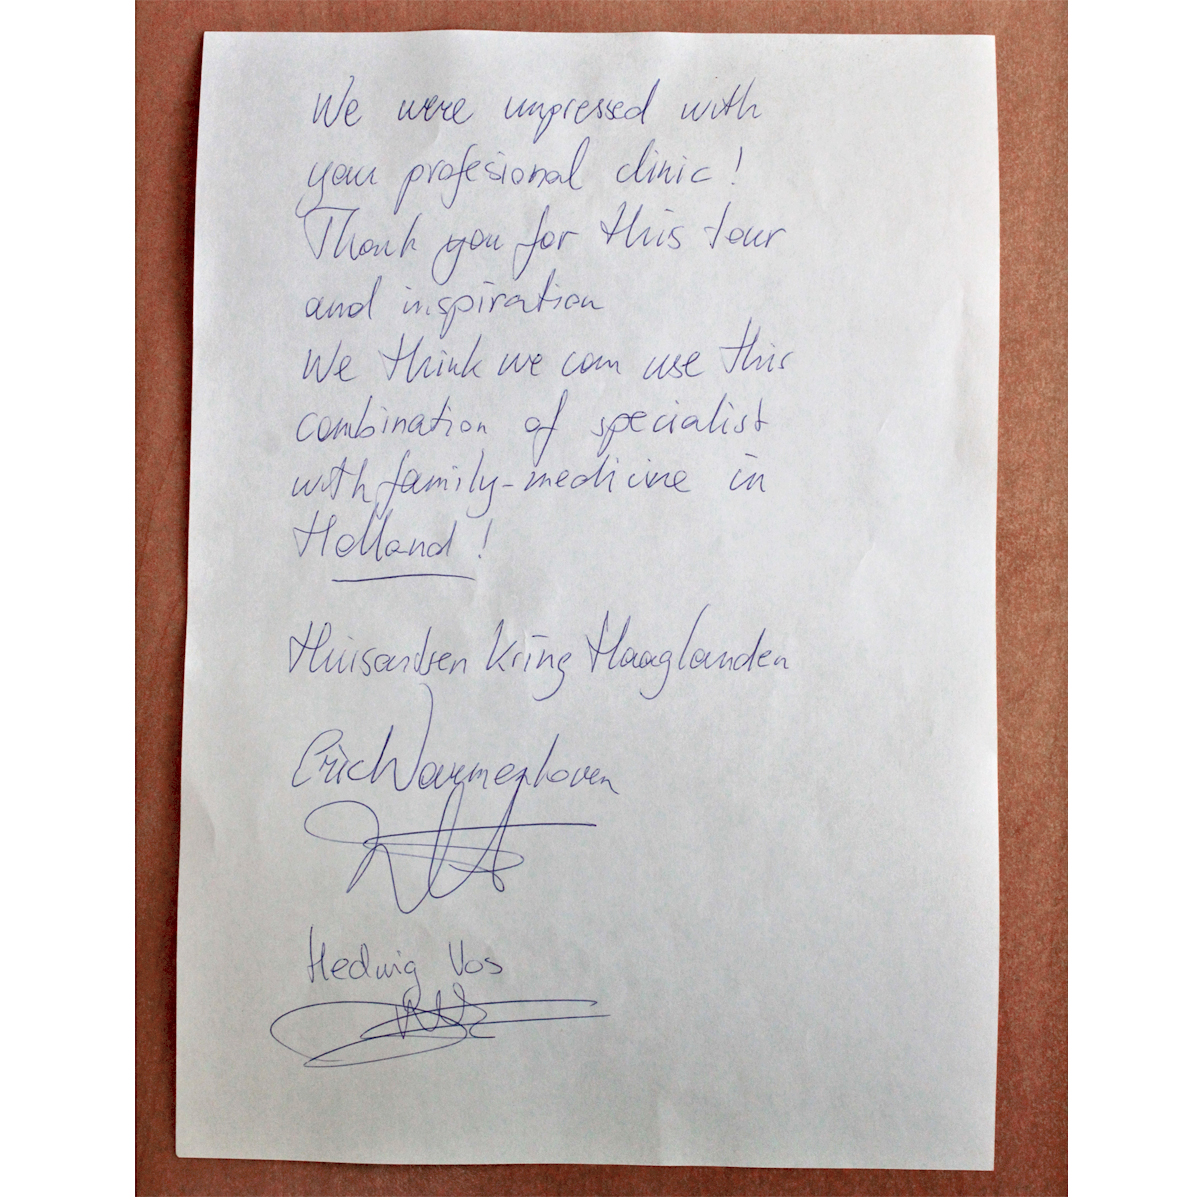 We were impressed with
your profesional clinic!
Thank you for this tour
and inspiration
We think we can use this
combination of specialist
with family-medicine in
Holland!
Huisartsen Kring Haaglanden
Eric Warmenhoven
Hedwig Vos